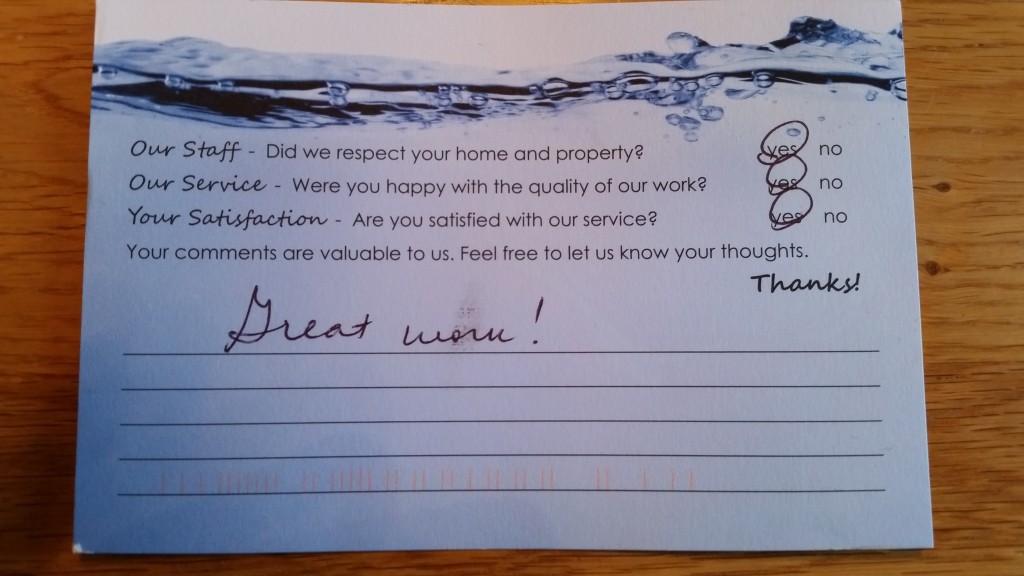 Our Staff - Did we respect your home and property? yes no
Our Service - Were you happy with the quality of our work? yes no
Your Satisfaction - Are you satisfied with our service? yes no
Your comments are valuable to us. Feel free to let us know your thoughts.
Thanks!
Great work!